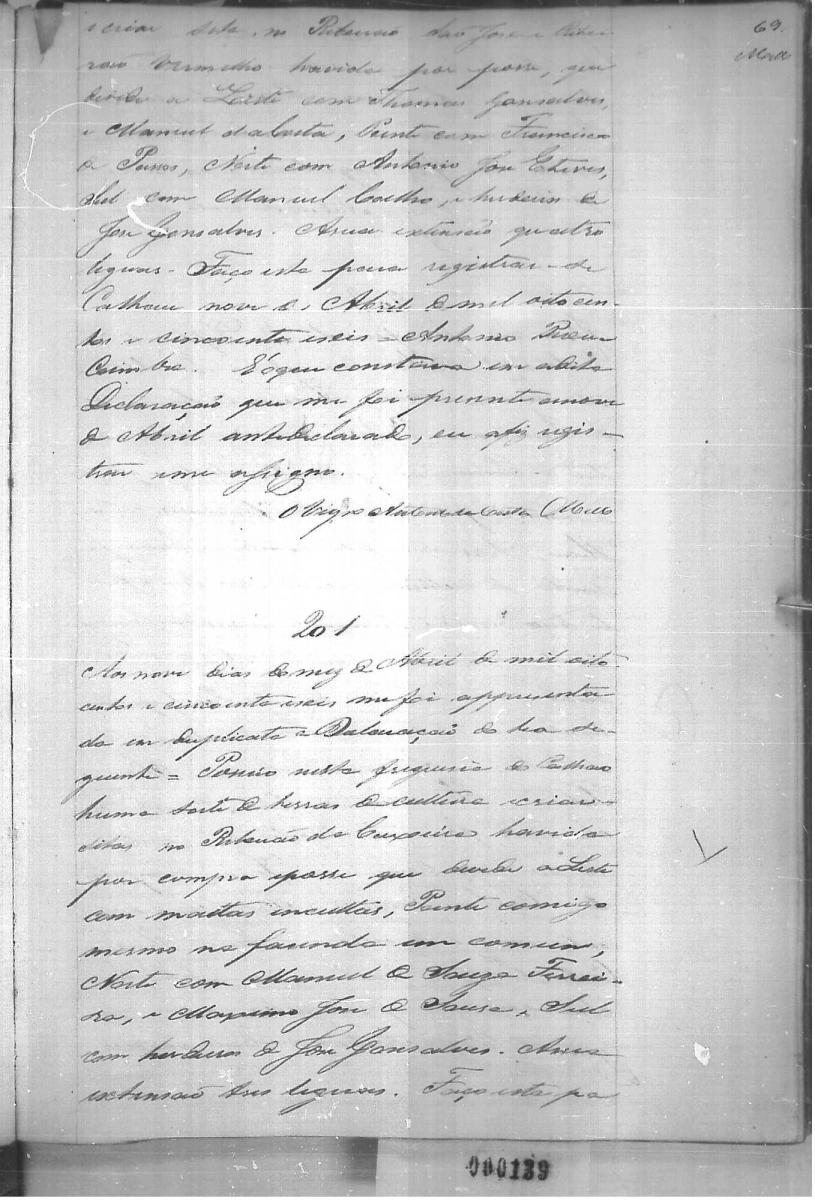 69.
Mello
e criar sita, no Ribeirão São José e Ribei
rão Vermelho havida por posse, que
divide a Leste com Thomas Gonsalves,
e Manuel da Costa, Poente com Francisco
de Passos, Norte com Antonio José Esteves,
Sul com Manuel Coelho, e herdeiros de
José Gonsalves. A sua extensão quatro
leguas. Faço este para registrar-se
Calhau nove de Abril de mil oito cen-
tos e cincoenta e seis = Antonio
Coimbra. É o que constava em a dita
Declaração que me foi presente a nove
de Abril antedeclarado, eu a fiz regis-
trar e me assigno.
O Vigro Antonio da Costa Mello
201
Aos nove dias do mez de Abril de mil oito
centos e cincoenta e seis me foi appresenta-
da em duplicata a Declaração do theor se-
guinte = Possuo nesta freguesia do Calhao
huma sorte de terras de cultura e criar
sitas no Ribeirão da Caxoeira havida
por compra e posse que divide a Leste
com mattas incultas, Poente comigo
mesmo na fazenda em comum,
Norte com Manuel de Souza Ferrei-
ra, e Maximo José de Sousa, Sul
com herdeiros de José Gonsalves. A sua
extensão tres leguas. Faço este pa
000139